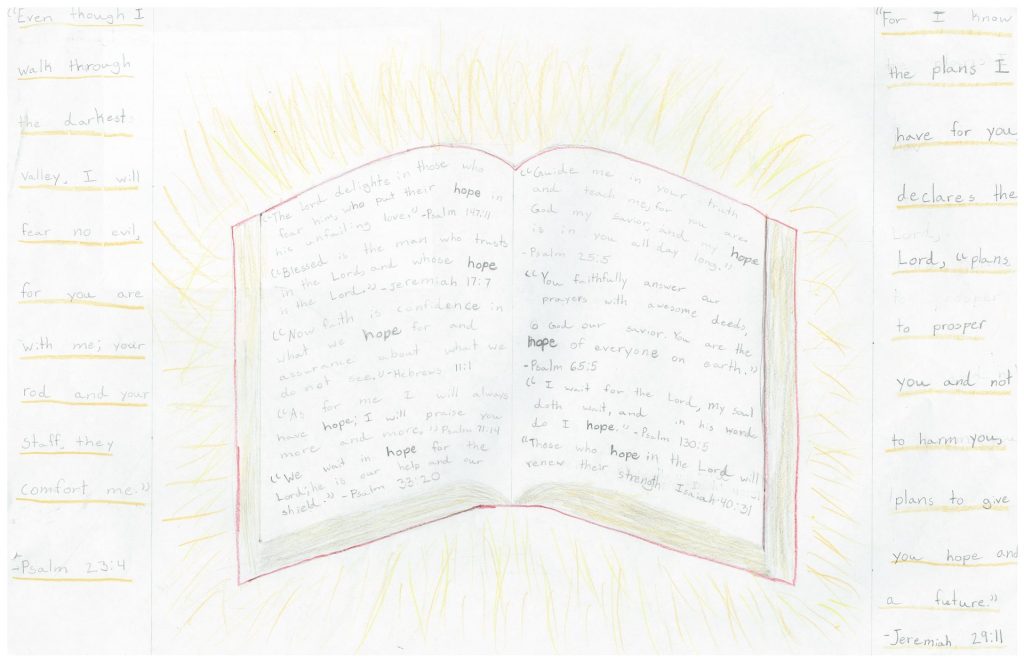 “Even though I
walk through
the darkest
valley, I will
fear no evil,
for you are
with me; your
rod and your
staff, they
comfort me.”
-Psalm 23:4
“The Lord delighte in those who
fear him, who put their hope in
his unfailing love.” -Psalm 147:11
“Blessed is the man who trusts
in the Lord, and whose hope
is the Lord.” -Jeremiah 17:7
“Now faith is confidence in
what we hope for and
assurance about what we
do not see.” -Hebrews 11:1
“As for me I will always
have hope; I will praise you
more and more.” Psalm 71:14
“We wait in hope for the
Lord; he is our help and our
shield.” -Psalm 33:20
“Guide me in your truth
and teach me, for you are
God my savior, and my hope
is in you all day long.”
-Psalm 25:5
“You faithfully answer our
prayers with awesome deeds,
O God our savior. You are the
hope of everyone on earth.”
-Psalm 65:5
“I wait for the Lord, my soul
doth wait, and in his words
do I hope.” -Psalm 130:5
“Those who hope in the Lord will
renew their strength Isaiah 40:31
“For I know
the plans I
have for you
declares the
Lord, “plans
to prosper
you and not
to harm you,
plans to give
you hope and
a future.”
-Jeremiah 29:11